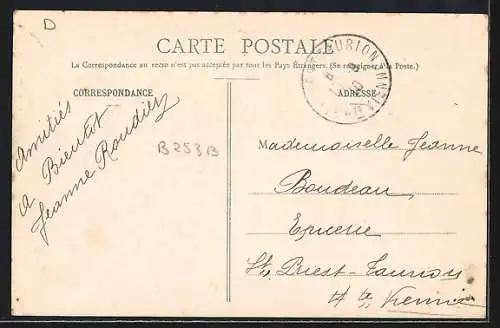 D
CARTE POSTALE
La Correspondance au recto n'est pas acceptée par tous les Pays Étrangers. (Se renseigner à la Poste.)
CORRESPONDANCE
ADRESSE
Amitiés
A Bientot
Jeanne
B253B
Mademoiselle Jeanne
Boudeau
Epicerie
St Priest-Taurion
Hte Vienne